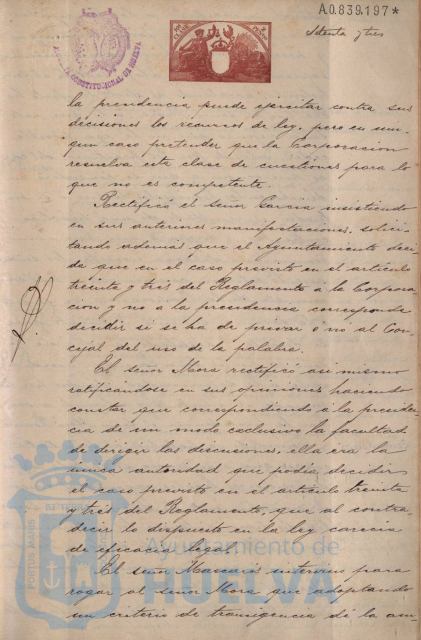 A.0.839.197*
Setenta y tres
CONSTITUCIONAL DE HUELVA
la presidencia puede ejercitar contra sus
decisiones los recursos de ley, pero en nin-
gun caso pretender que la Corporacion
resuelva esta clase de cuestiones para lo
que no es competente.
Rectificó el señor Garcia insistiendo
en sus anteriores manifestaciones, solici-
tando además que el Ayuntamiento deci-
da que en el caso previsto en el artículo
treinta y tres del Reglamento á la Corpora-
cion y no á la presidencia corresponde
decidir si se ha de privar ó no al Con-
cejal del uso de la palabra.
El señor Mora rectificó asi mismo
ratificandose en sus opiniones haciendo
constar que correspondiendo á la presiden-
cia de un modo exclusivo la facultad
de dirigir las discusiones, ella era la
única autoridad que podia decidir
el caso previsto en el artículo treinta
y tres del Reglamento, que al contra-
decir lo dispuesto en la ley carecia
de eficacia legal.
El señor intervino para
rogar al señor Mora que adoptando
un criterio de transigencia dé la am-
PORTUS MARIS
Ayuntamiento de
HUELVA